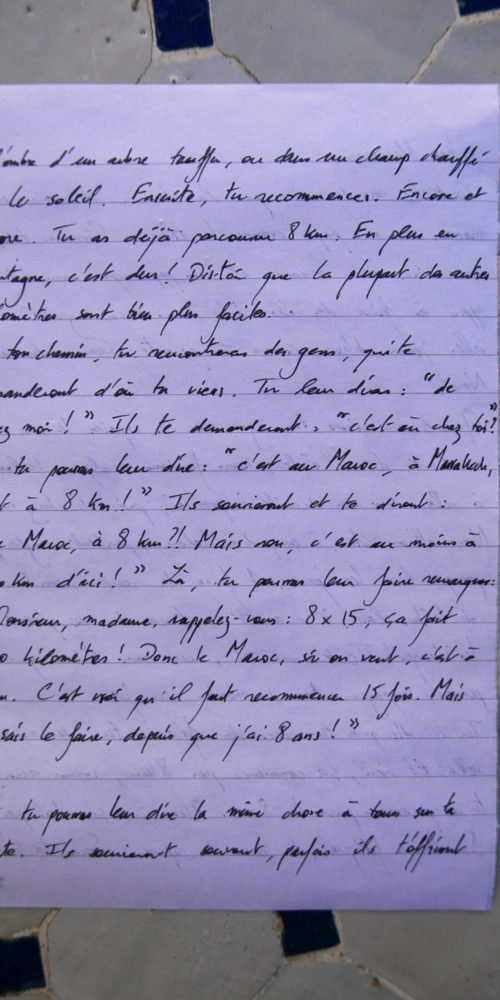 l'ombre d'un arbre touffu, ou dans un champ chauffé
le soleil. Ensuite, tu recommences. Encore et
ore. Tu as déjà parcouru 8 km. En plus en
ntagne, c'est dur! Dis-toi que la plupart des autres
lomètres sont bien plus faciles.
ton chemin, tu rencontreras des gens, qui te
manderont d'où tu viens. Tu leur diras : "de
ez moi!" Ils te demanderont : "c'est où chez toi?"
tu pourras leur dire : "c'est au Maroc, à Marrakech,
t à 8 km!" Ils souriront et te diront :
e Maroc, à 8 km?! Mais non, c'est au moins à
0 km d'ici!" Là, tu pourras leur faire remarquer:
Monsieur, madame, rappelez-vous : 8 x 15, ça fait
0 kilomètres! Donc le Maroc, si on veut, c'est à
m. C'est vrai qu'il faut recommencer 15 fois. Mais
sais le faire, depuis que j'ai 8 ans!"
tu pourras leur dire la même chose à tous sur ta
te. Ils souriront souvent, parfois ils t'offriront